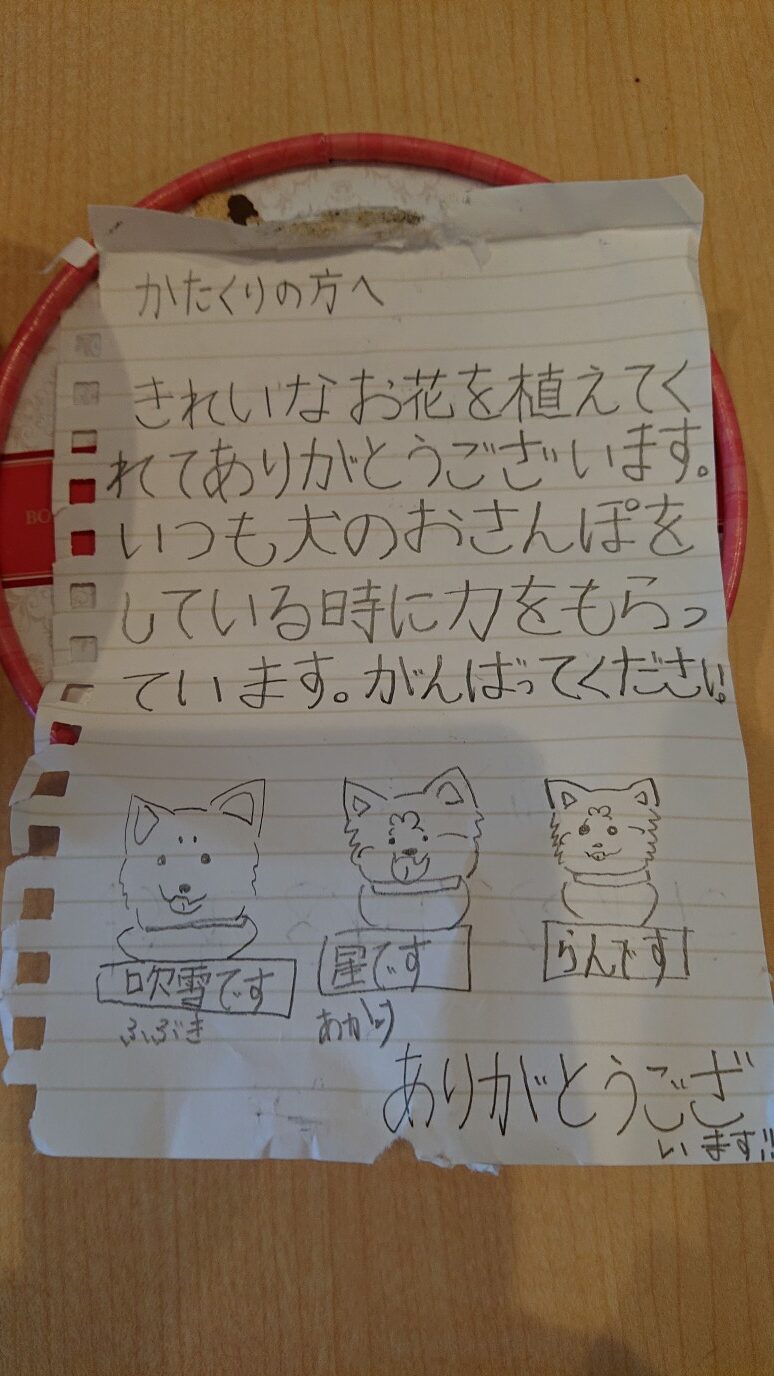 かたくりの方へ
きれいなお花を植えてく
れてありがとうございます。
いつも犬のおさんぽを
している時に力をもらっ
ています。がんばってください。
吹雪です
ふぶき
星です
あかり
らんです
ありがとうござ
います!!
BO